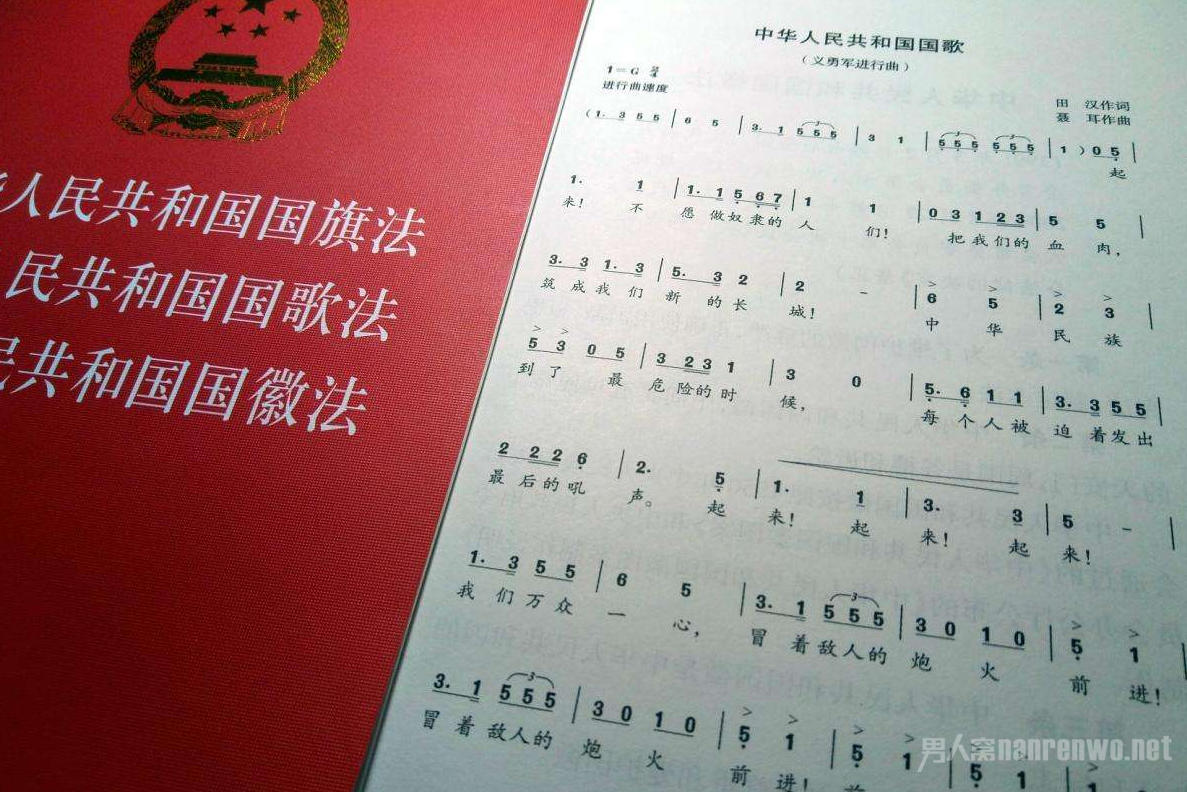 华人民共和国国旗法
民共和国国歌法
民共和国国徽法
中华人民共和国国歌
(义勇军进行曲)
1=G 2/4
进行曲速度
田 汉作词
聂 耳作曲
(1. 3 5 5 | 6 5 | 3. 1 5 5 5 | 3 1 | 5 5 5 5 5 5 | 1 ) 0 5 |
起
1. 1 | 1. 1 5 6 7 | 1 1 | 0 3 1 2 3 | 5 5 |
来! 不 愿 做奴 隶的 人 们! 把我们的 血 肉,
3. 3 1. 3 | 5. 3 2 | 2 - | 6 5 | 2 3 |
筑成我们 新 的长 城! 中 华 民 族
5 3 0 5 | 3 2 3 1 | 3 0 | 5. 6 1 1 | 3. 3 5 5 |
到了 最 危险的时 候, 每 个人被 迫着发出
2 2 2 2 6 | 2. 5 | 1. 1 | 3. 3 | 5 - |
最后的吼 声。 起 来! 起 来! 起 来!
1. 3 5 5 | 6 5 | 3. 1 5 5 5 | 3 0 1 0 | 5 1 |
我们万众 一 心, 冒着敌人的 炮 火 前 进!
3. 1 5 5 5 | 3 0 1 0 | 5 1 | 5 1 | 5 1
冒着敌人的 炮 火 前 进! 前
男人窝nanrenwo.net